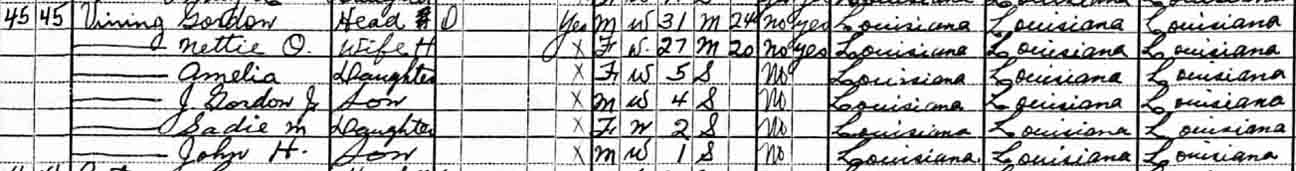 45 45 Vining Gordon Head O Yes M W 31 M 24 No yes Louisiana Louisiana Louisiana
Nettie O. Wife H X F W 27 M 20 No yes Louisiana Louisiana Louisiana
Amelia Daughter X F W 5 S No Louisiana Louisiana Louisiana
J Gordon Jr Son X M W 4 S No Louisiana Louisiana Louisiana
Sadie M Daughter X F W 2 S No Louisiana Louisiana Louisiana
John H. Son X M W 1 S No Louisiana Louisiana Louisiana